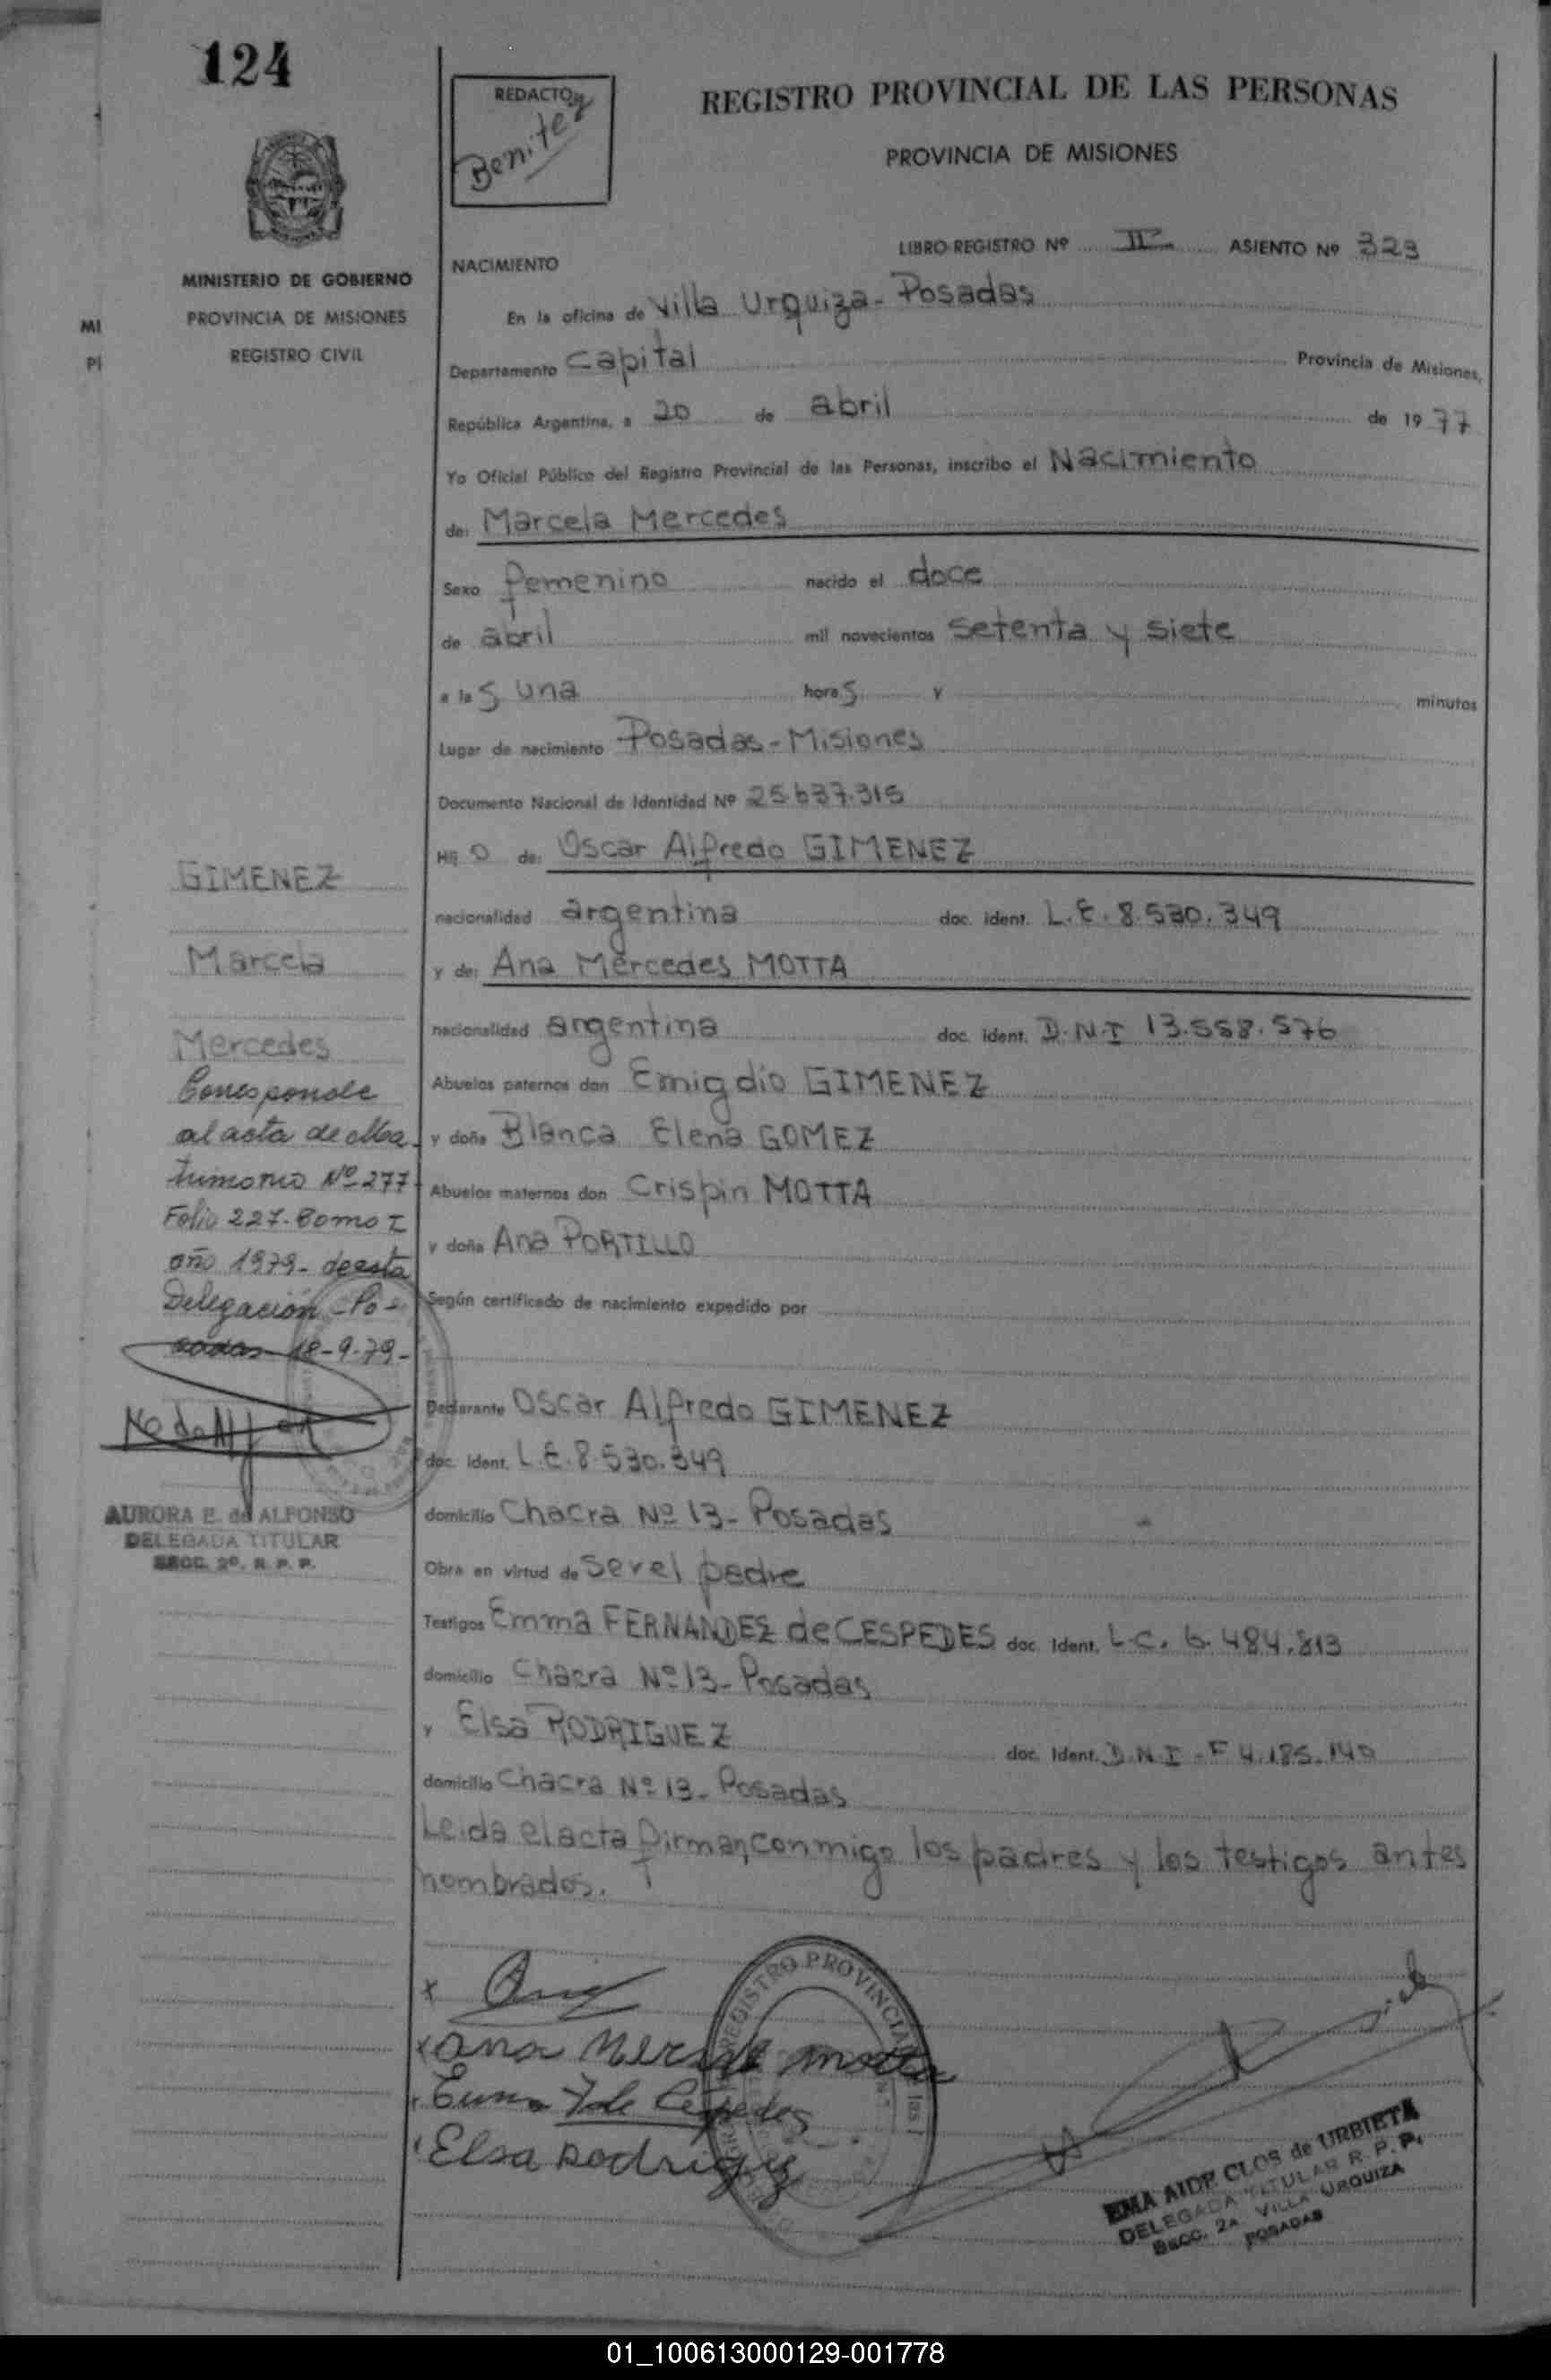 124
REDACTO
Benitez
REGISTRO PROVINCIAL DE LAS PERSONAS
PROVINCIA DE MISIONES
MINISTERIO DE GOBIERNO
PROVINCIA DE MISIONES
REGISTRO CIVIL
MI
PI
LIBRO-REGISTRO Nº II ASIENTO Nº 323
NACIMIENTO
En la oficina de Villa Urquiza - Posadas
Departamento Capital Provincia de Misiones,
República Argentina, a 20 de abril de 1977
Yo Oficial Público del Registro Provincial de las Personas, inscribo el Nacimiento
de: Marcela Mercedes
Sexo femenino nacido el doce
de abril mil novecientos setenta y siete
a las una horas y minutos
Lugar de nacimiento Posadas - Misiones
Documento Nacional de Identidad Nº 25.637.315
Hijo de: Oscar Alfredo GIMENEZ
nacionalidad argentina doc. ident. L.E. 8.530.349
y de: Ana Mercedes MOTTA
nacionalidad argentina doc. ident. D.N.I 13.558.576
Abuelos paternos don Emigdio GIMENEZ
y doña Blanca Elena GOMEZ
Abuelos maternos don Crispin MOTTA
y doña Ana PORTILLO
Según certificado de nacimiento expedido por
Declarante Oscar Alfredo GIMENEZ
doc. ident. L.E. 8.530.349
domicilio Chacra Nº 13 - Posadas
Obra en virtud de ser el padre
Testigos Emma FERNANDEZ de CESPEDES doc. ident. L.C. 6.484.813
domicilio Chacra Nº 13 - Posadas
y Elsa RODRIGUEZ doc. ident. D.N.I - F 4.185.140
domicilio Chacra Nº 13 - Posadas
Leida el acta firman conmigo los padres y los testigos antes
nombrados.
GIMENEZ
Marcela
Mercedes
Corresponde
al acta de Ma-
trimonio Nº 277
Folio 227 - Tomo I
año 1979 - de esta
Delegación - Po-
sadas 18-9-79 -
AURORA E. de ALFONSO
DELEGADA TITULAR
SECC. 2º. R. P. P.
x
x Ana Mercedes Motta
Emma F de Cespedes
Elsa Rodriguez
REGISTRO PROVINCIAL de las
EMA AIDE CLOS de URBIETA
DELEGADA TITULAR R. P. P.
SECC. 2A VILLA URQUIZA
POSADAS
01_100613000129-001778